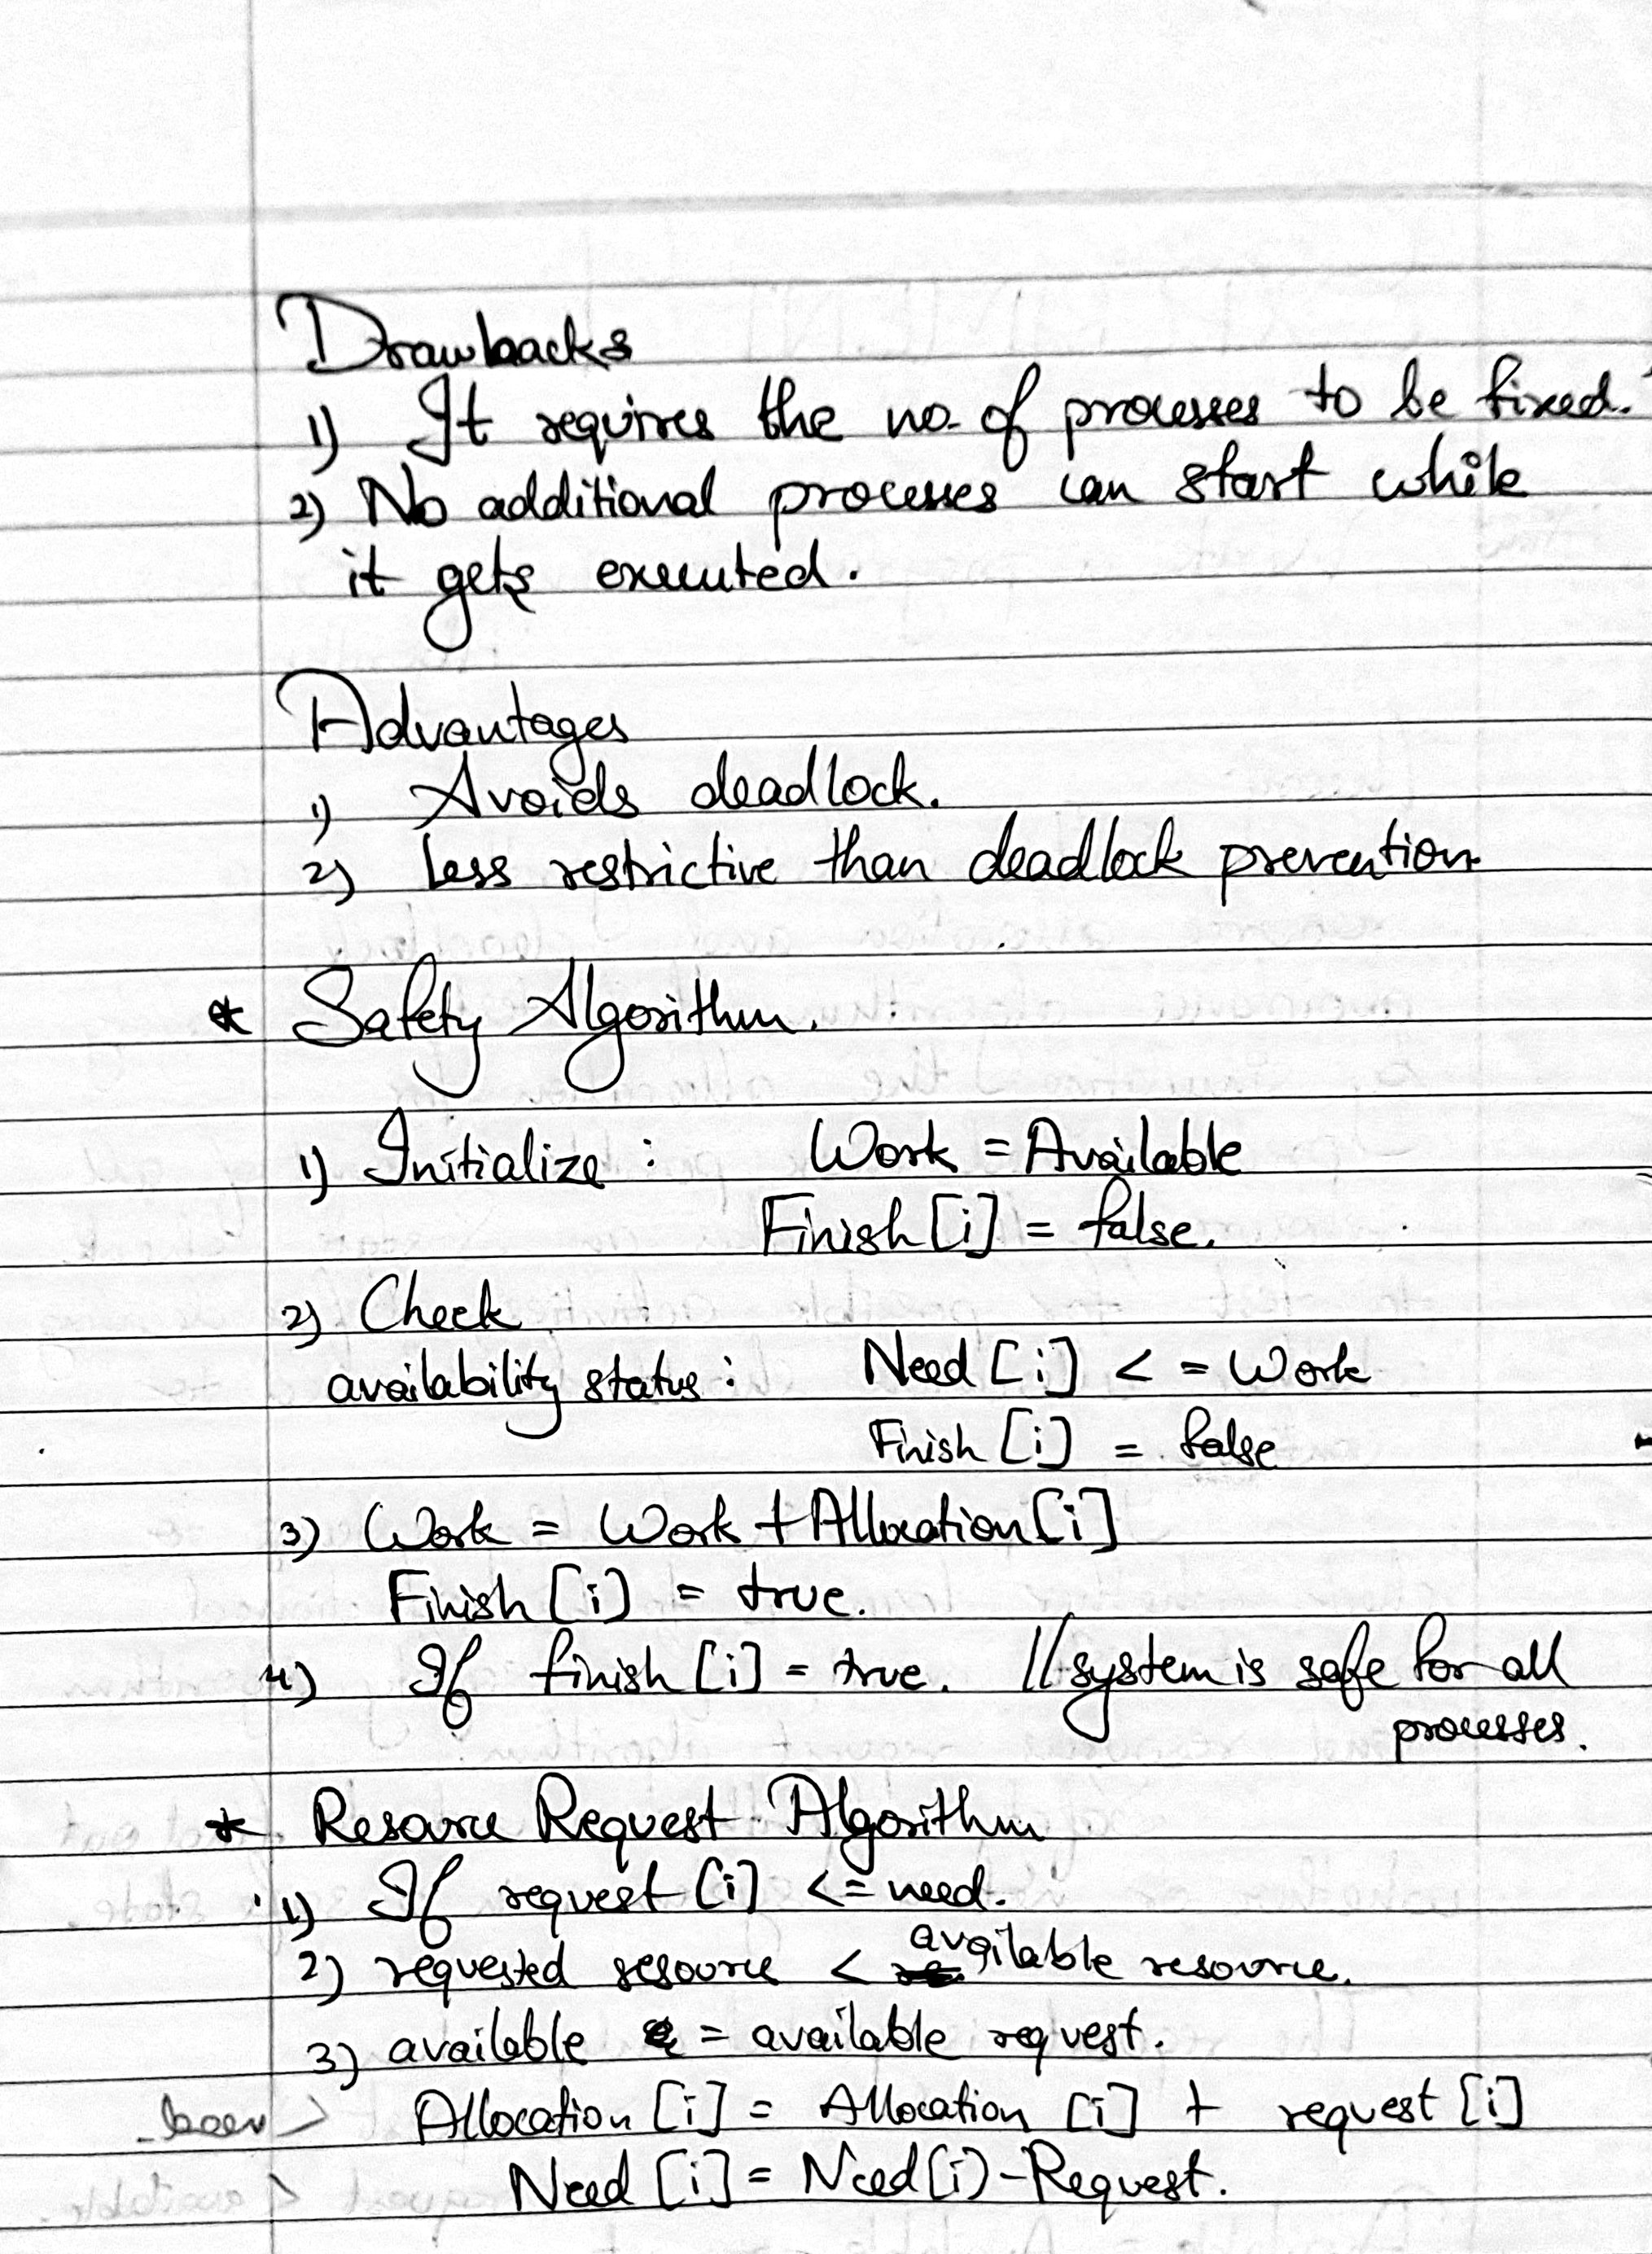 Drawbacks
1) It requires the no. of processes to be fixed.
2) No additional processes can start while
it gets executed.
Advantages
1) Avoids deadlock.
2) Less restrictive than deadlock prevention
* Safety Algorithm.
1) Initialize : Work = Available
Finish [i] = false.
2) Check
availability status : Need [i] < = Work
Finish [i] = false
3) Work = Work + Allocation [i]
Finish [i] = true.
4) If finish [i] = true. // system is safe for all
processes.
* Resource Request Algorithm
1) If request [i] <= need.
2) requested resource < available resource.
3) available = available request.
Allocation [i] = Allocation [i] + request [i]
Need [i] = Need [i] - Request.